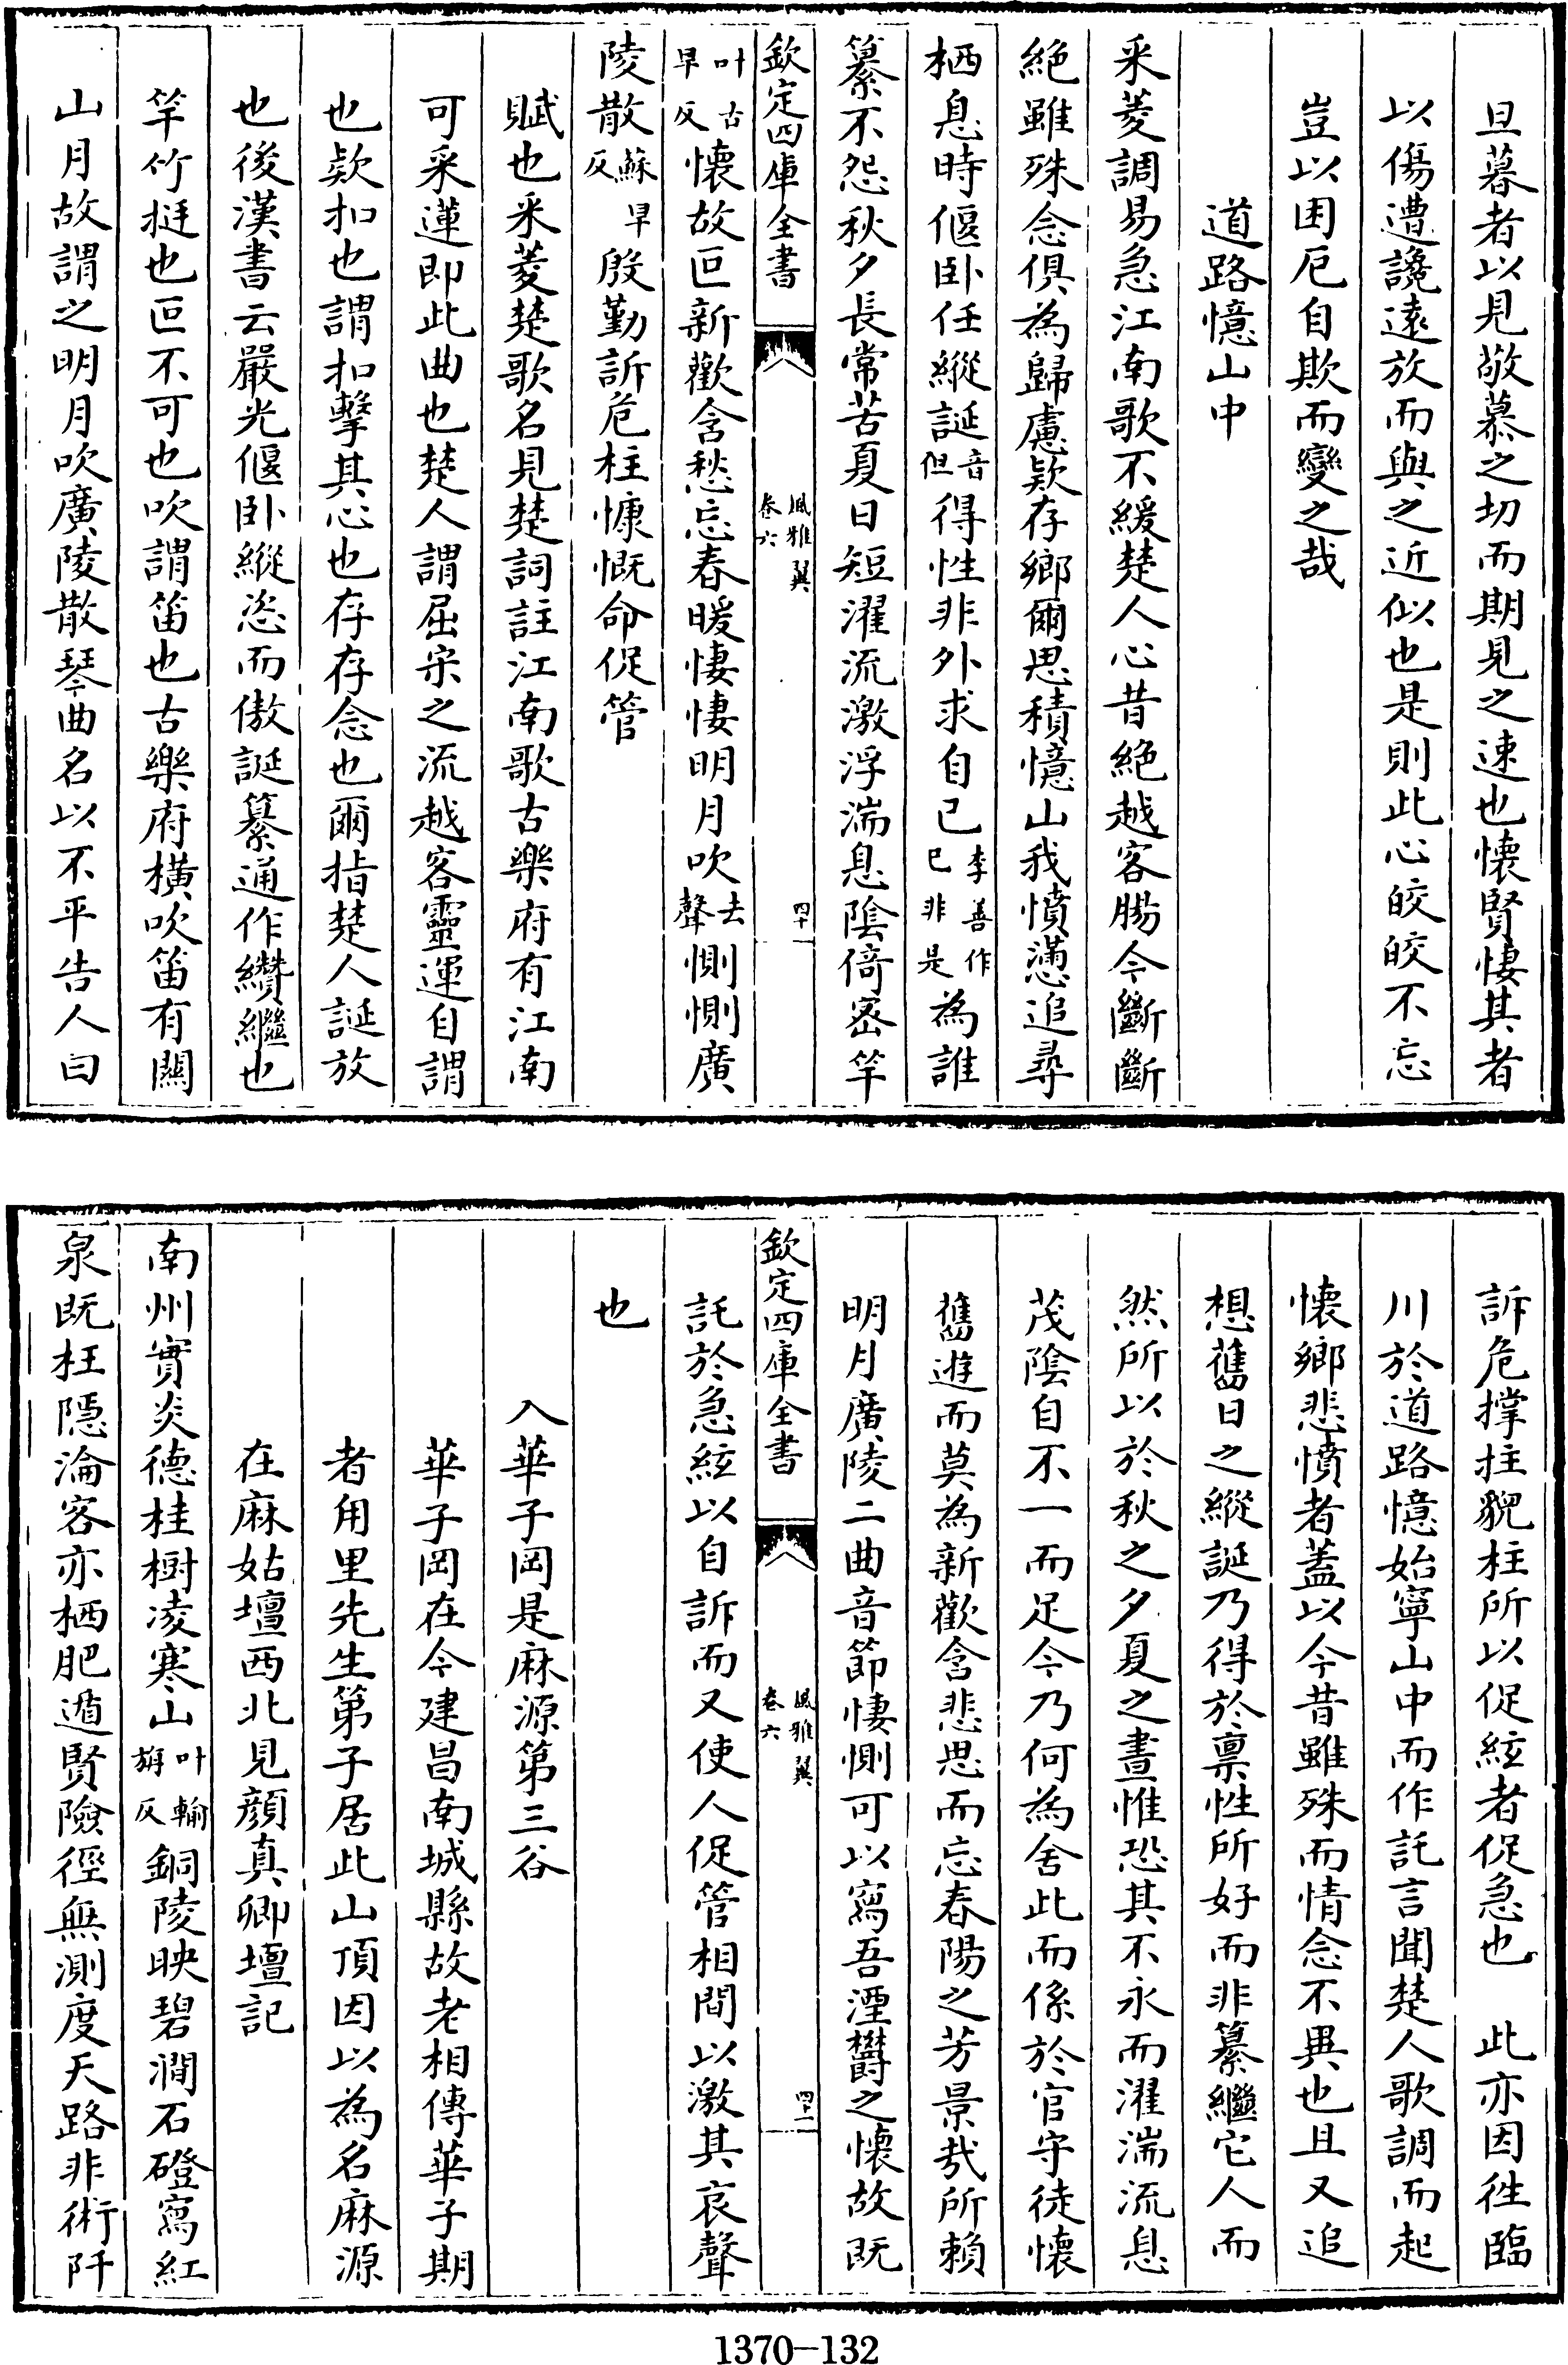 旦暮者以見敬慕之切而期見之速也懐賢悽其者
以傷遭讒遠放而與之近似也是則此心皎皎不忘
豈以困厄自欺而變之哉
道路憶山中
采菱調易急江南歌不緩楚人心昔絶越客腸今斷斷
絶雖殊念俱為歸慮欵存鄉爾思積憶山我憤懣追尋
栖息時偃卧任縱誕音但得性非外求自已李善作已非是為誰
纂不怨秋夕長常苦夏日短濯流激浮湍息陰倚宻竿
欽定四庫全書
風雅翼
卷六
四十一
叶古早反懐故叵新歡含愁忘春暖悽悽明月吹去聲惻惻廣
陵散蘇早反殷勤訴危柱慷慨命促管
賦也采菱楚歌名見楚詞註江南歌古樂府有江南
可采蓮即此曲也楚人謂屈宋之流越客靈運自謂
也欵扣也謂扣擊其心也存存念也爾指楚人誕放
也後漢書云嚴光偃卧縱恣而傲誕纂通作纘繼也
竿竹挺也叵不可也吹謂笛也古樂府横吹笛有闗
山月故謂之明月吹廣陵散琴曲名以不平告人曰
訴危撑拄貌柱所以促絃者促急也　此亦因徃臨
川於道路憶始寧山中而作託言聞楚人歌調而起
懐鄉悲憤者蓋以今昔雖殊而情念不異也且又追
想舊日之縱誕乃得於禀性所好而非纂繼它人而
然所以於秋之夕夏之晝惟恐其不永而濯湍流息
茂陰自不一而足今乃何為舍此而係於官守徒懐
舊遊而莫為新歡含悲思而忘春陽之芳景哉所賴
明月廣陵二曲音節悽惻可以寫吾湮欝之懐故既
欽定四庫全書
風雅翼
卷六
四十二
託於急絃以自訴而又使人促管相間以激其哀聲
也
入華子岡是麻源第三谷
華子岡在今建昌南城縣故老相傳華子期
者用里先生第子居此山頂因以為名麻源
在麻姑壇西北見顔真卿壇記
南州實炎德桂樹凌寒山叶輸旃反銅陵映碧澗石磴寫紅
泉既枉隱淪客亦栖肥遁賢險徑無測度天路非術阡
1370—132